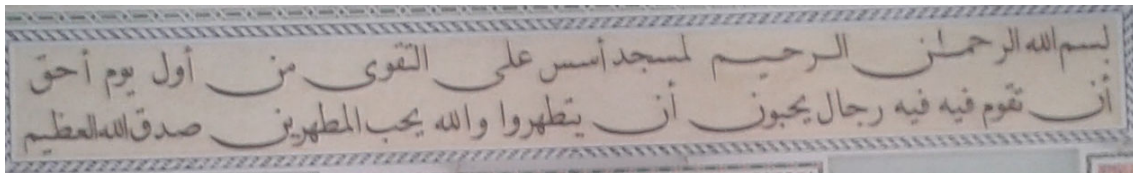 بسم الله الرحمن الرحيم لمسجد أسس على التقوى من أول يوم أحق
أن تقوم فيه فيه رجال يحبون أن يتطهروا والله يحب المطهرين صدق الله العظيم